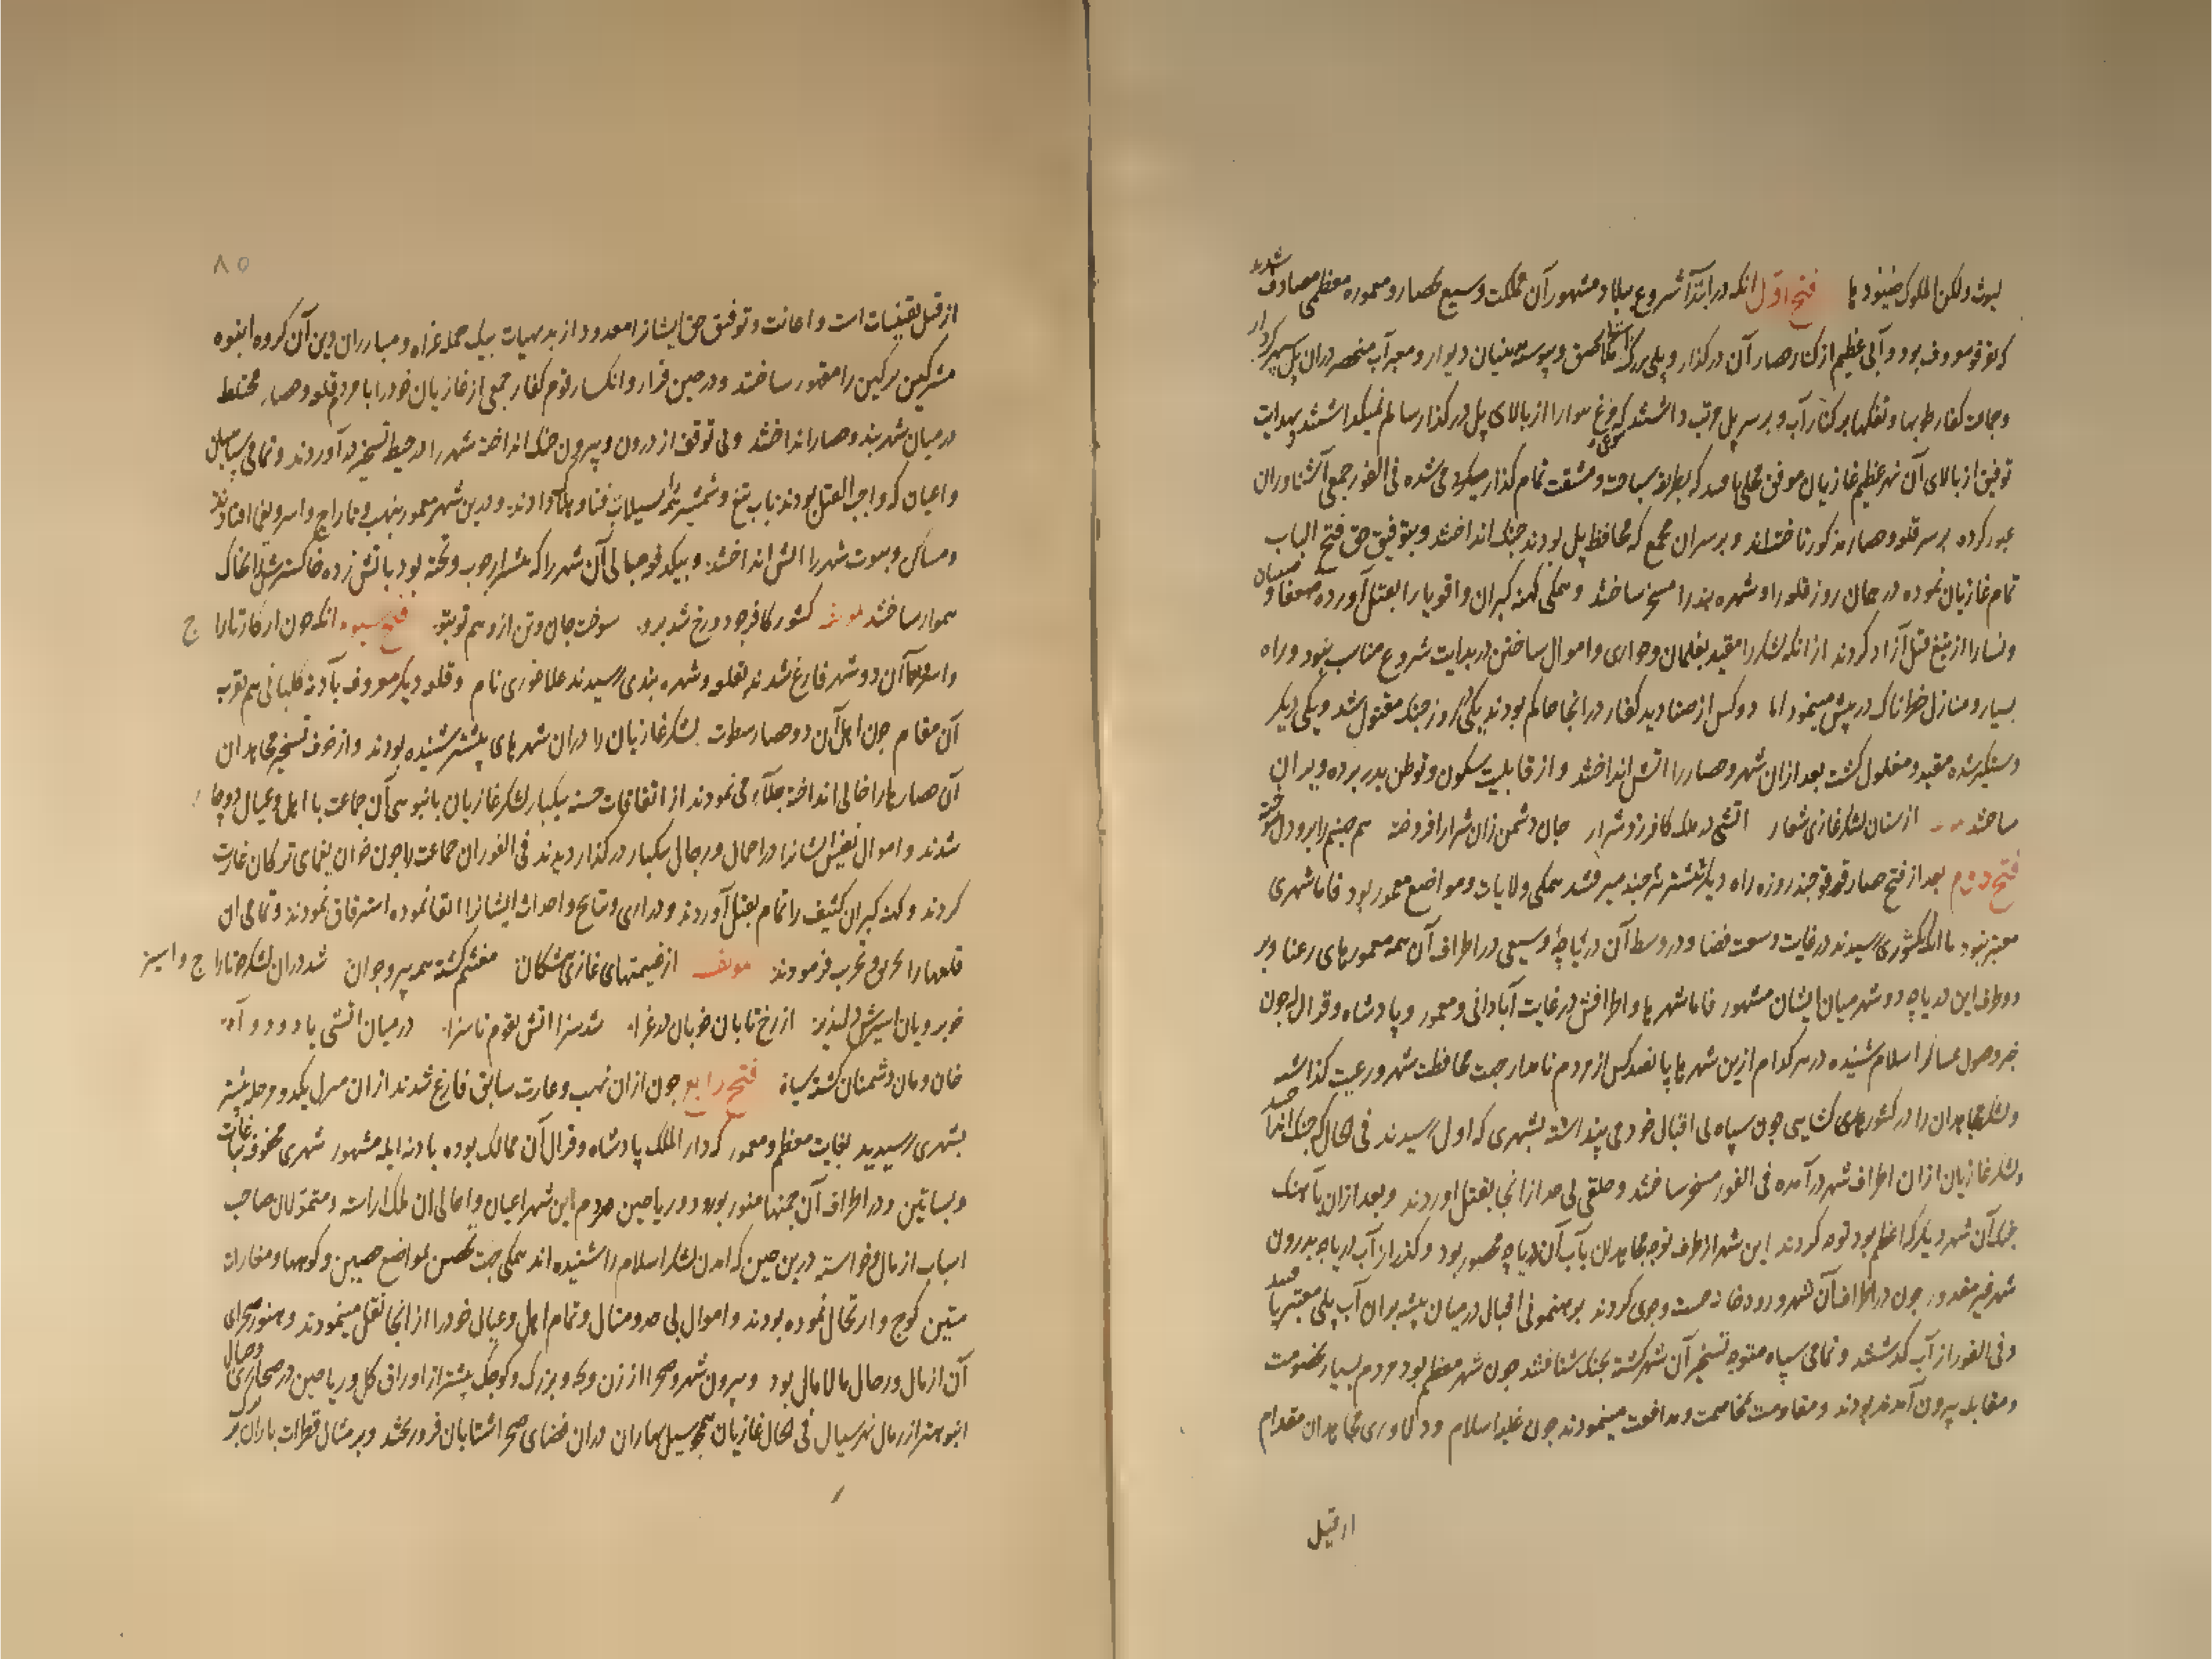 فتح اول انکه در ابتدآ شروع ببلاد مشهور آن مملکت وسیع بحصار و معموره معظمی مصادف شدند
معروف بود و آبی عظیم از کنار حصار آن در گذار و پلی بزرگ و معبر آب منحصر در آن پل
و جماعت کفار طوبها و تفکها بر کنار آب و بر سر پل مرتب داشتند که مرغ هوا را از بالای پل در گذار سالم نمیگذاشتند بهدایت
توفیق از بالای آن نهر عظیم غازیان موفق بمحلی که بطریق سباحت و مشقت تمام گذار می شده فی الفور جمعی آشناوران
عبور کرده بر سر قلعه و حصار مذکور تاختند و بر سر آن مجمع که محافظ پل بودند جنک انداختند و بتوفیق حق فتح الباب
تمام غازیان نموده در همان روز قلعه را و شهره بند را مسخر ساختند و همکی کهنه کبران و اقویا را بقتل آورده ضعفا و صبیان
و نسا را از تیغ قتل آزاد کردند از انکه لشکر را مقید بغلمان و جواری و اموال ساختن در بدایت شروع مناسب نبود و راه
بسیار و منازل خطرناک در پیش مینمود اما دو کس از صنادید کفار در انجا حاکم بودند یکی در روز جنک مقتول شد و یکی دیکر
دستکیر شده مقید و مغلول کشت بعد از ان شهر و حصار را اتش انداختند و از قابلیت سکون و توطن بدر برده ویران
ساختند از سنان لشکر غازی شعار اتشی در ملک کافر زد شرار جان دشمن زان شرار افروخته هم جهنم را برو دل سوخته
فتح دوم بعد از فتح حصار قوقو جند روزه راه دیکر پیشتر میرفتند همکی ولایات و مواضع معمور بود فاما شهری
معتبر نبود تا انکه بکشوری رسیدند در غایت وسعت فضا و در وسط آن دریاچهٔ وسیعی در اطراف آن همه معمورهای رعنا و بر
دو طرف این دریاچه دو شهر میان ایشان مشهور فاما شهرها و اطرافش در غایت آبادانی و معمور و پادشاه و قرال چون
خبر وصول عساکر اسلام شنیده در هر کدام ازین شهرها پانصد کس از مردم نامدار جهت محافظت شهر و رعیت کذاشته
و لشکر مجاهدان را در کشورهای کشایی چون سپاه بی اقبال خود می پنداشته بشهری که اول رسیدند فی الحال جنک
و لشکر غازیان از ان اطراف شهر در آمده فی الفور مسخر ساختند و خلقی بی حد از انجا بقتل اوردند و بعد از ان بآهنک
جنک آن شهر دیکر که اعظم بود توجه کردند این شهر از طرف توجه مجاهدان بآب آن دریاچه محصور بود و کذر از آب دریاچه بدرون
شهر غیر مقدور چون در اطراف آن شهر و رودخانه جست و جوی کردند برهنمونی اقبال در میان بیشه بر ان آب پلی معتبر یافتند
و فی الفور از آب کذشتند و تمامی سپاه متوجه تسخیر آن شهر کشته بجنک شتافتند چون شهر معظم بود مردم بسیار بخصومت
و مقابله بیرون آمده بودند و مقاومت بمخاصمت و مدافعت مینمودند چون غلبه اسلام و دلاوری مجاهدان مقدام
از قبیل
۸۵
از قبیل یقینیات است و اعانت و توفیق حق ایشانرا معدود از بدیهیات بیک حمله غزاه و مبارزان دین آن کروه انبوه
مشرکین را مقهور ساختند و در حین فرار و انکسار قوم کفار جمعی از غازیان خود را با مردم قلعه و حصار مختلط
در میان شهر بند و حصار انداختند و بی توقف از درون و بیرون جنک انداخته شهر را در حیطه تسخیر در آوردند و تمامی
و اعیان که واجب القتل بودند بآب تیغ و شمشیر بمسیلات فنا و هلاک دادند و درین شهر معمور بنهب و تاراج و اسر
و مساکن و بیوت شهر را اتش انداختند آن شهر را که بیشتر از چوب و تخته بود باتش زده خاکسترش با خاک
هموار ساختند کشور کافر چو دوزخ شد برو سوخت جان و تن ازو هم تو بتو فتح سیوم انکه چون از کار تاراج
و اسر آن دو شهر فارغ شدند بقلعه و شهره بندی رسیدند نام و قلعه دیکر معروف هم بقرب
آن مقام چون اهل آن دو حصار سطوت لشکر غازیان را در ان شهرهای پیشتر شنیده بودند و از خوف تسخیر مجاهدان
آن حصارها را خالی انداخته جلا می نمودند از اتفاقات حسنه بیکبار لشکر غازیان بانبوهی آن جماعت با اهل و عیال دوچار
شدند و اموال نفیس ایشانرا در احمال و رحال بیکبار در کذار دیدند فی الفور ان جماعت را چون خوان یغمای ترکان غارت
کردند و کهنه کبران کثیف را تمام بقتل آوردند و ذراری و احداث ایشانرا ابقا نموده استرقاق نمودند و تمامی ان
قلعها را حرق و تخریب فرمودند مولفه از غنیمتهای غازی بیشکان مغتنم کشته همه پیر و جوان شد در ان لشکر ز تاراج و اسیر
خوبرویان اسیرش دلپذیر از رخ تابان خوبان در غزا شد سزا اتش بقوم ناسزا در میان اتشی با دود و آه
خان و مان دشمنان کشته سیاه فتح رابع چون از ان نهب و غارت سابق فارغ شدند از ان منزل یکدو مرحله پیشتر
بشهری رسیدند بغایت معظم و معمور که دار الملک پادشاه و قرال آن ممالک بوده مشهور شهری محفوف بباغات
و بساتین و در اطراف آن چمنها منور بورود و ریاحین مردم این شهر اعیان و اهالی ان ملک اراسته و متمولان صاحب
اسباب از مال و خواسته درین حین که امدن لشکر اسلام را شنیده اند همکی جهت تحصن بمواضع حصین و کوهها و مغارات
متین کوچ و ارتحال نموده بودند و اموال بی حد و منال و تمام اهل و عیال خود را از انجا نقل مینمودند و هنوز صحرای
آن از مال و رحال مالامال بود و بیرون شهر و صحرا از زن و بچه و بزرک و کوچک بیشتر از اوراق کل و ریاحین در صحاری و جبال
انبوه تر از رمال نهر سیال فی الحال غازیان همچو سیل بهاران در ان فضای صحرا شتابان فرو ریختند و بر مثال قطرات باران بر